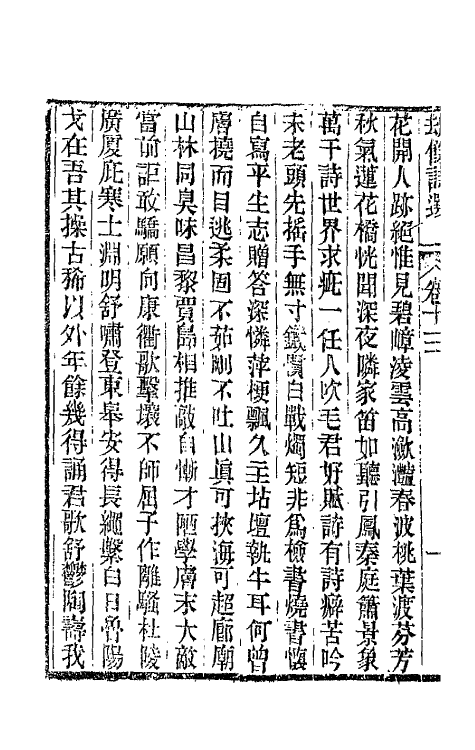 詩選 卷十 一
花開人跡絕惟見碧嶂凌雲高瀲灩春波桃葉渡芬芳
秋氣蓮花橋恍聞深夜隣家笛如聽引鳳秦庭簫景象
萬千詩世界求疵一任人吹毛君好賦詩有詩癖苦吟
未老頭先搖手無寸鐵實白戰燭短非爲檢書燒書懷
自寫平生志贈答深憐萍梗飄久主坫壇執牛耳何曾
膚撓而目逃柔固不茹剛不吐山眞可挾海可超廊廟
山林同臭味昌黎賈島相推敲自慚才陋學膚末大敵
當前詎敢驕願向康衢歌擊壤不師屈子作離騷杜陵
廣厦庇寒士淵明舒嘯登東皋安得長繩繫白日魯陽
戈在吾其操古稀以外年餘幾得誦君歌舒鬱陶壽我